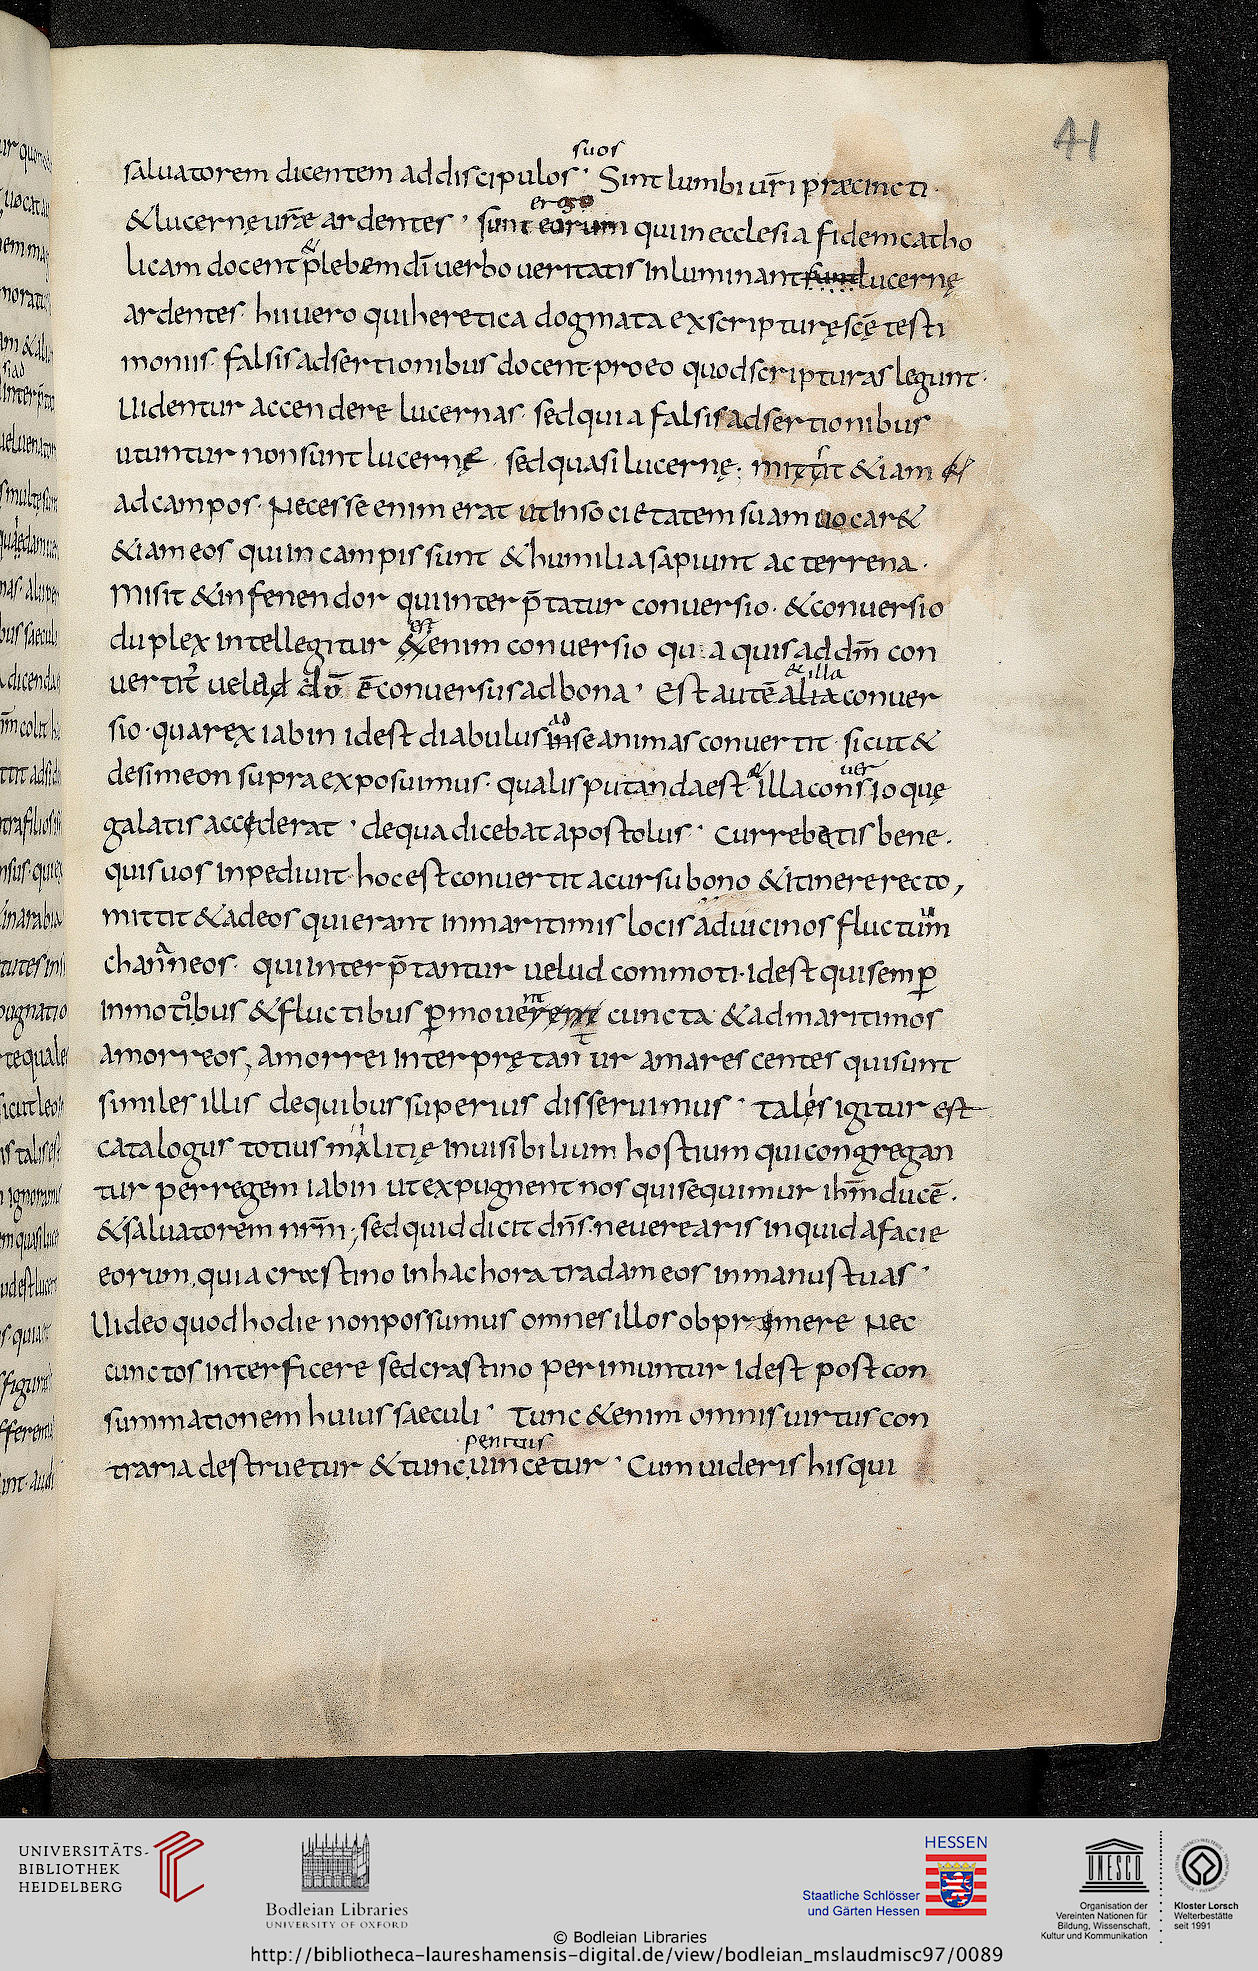 41
suos
saluatorem dicentem ad discipulos · Sint lumbi ur̄i præcincti ·
ergo
& lucernę urǣ ardentes · sunt eorum qui in ecclesia fidem catho
&
licam docent p̄lebem dī uerbo ueritatis inluminant sunt lucernę
ardentes · hii uero qui heretica dogmata ex scripturę scę̄ testi
moniis · falsis adsertionibus docent · pro eo quod scripturas legunt ·
Uidentur accendere lucernas · sed quia falsis adsertionibus
utuntur non sunt lucernę · sed quasi lucernę · mittit & iam
ad campos · Necesse enim erat ut in societatem suam uocar&
& iam eos qui in campis sunt & humilia sapiunt ac terrena ·
Misit & in fenendor qui interp̄tatur conuersio · & conuersio
est
duplex intellegitur & enim conuersio qua quis ad dm̄ con
& illa
uertit uel ad ē conuersus ad bona · Est autē alia conuer
ad
sio · qua rex iabin idest diabulus in se animas conuertit · sicut &
& uer
de simeon supra exposuimus · qualis putanda est illa consio quę
galatis accederat · de qua dicebat apostolus · currebatis bene ·
quis uos inpediuit · hoc est conuertit a cursu bono & itinere recto,
mittit & ad eos qui erant in maritimis locis ad uicinos fluctum
channeos · qui interp̄tantur uelud commoti · idest qui semp̱
in motibus & fluctibus p̱mouerent cuncta · & ad maritimos
amorreos, amorrei interprętan ur amarescentes qui sunt
similes illis de quibus superius disseruimus · tales igitur est
catalogus totius malitię inuisibilium hostium qui congregan
tur per regem iabin ut expugnent nos qui sequimur ihm̄ ducē ·
& saluatorem nrm̄ ; sed quid dicit dn̄s · ne uerearis inquid a facie
eorum, quia crastino in hac hora tradam eos in manus tuas ·
Uideo quod hodie non possumus omnes illos obpremere Nec
cunctos interficere sed crastino perimuntur idest post con
summationem huius saeculi · Tunc & enim omnis uirtus con
penitus
traria destruetur & tunc uincetur · Cum uideris his qui
UNIVERSITÄTS-
BIBLIOTHEK
HEIDELBERG
Bodleian Libraries
UNIVERSITY OF OXFORD
HESSEN
Staatliche Schlösser
und Gärten Hessen
UNESCO
Organisation der
Vereinten Nationen für
Bildung, Wissenschaft,
Kultur und Kommunikation
Kloster Lorsch
Welterbestätte
seit 1991
© Bodleian Libraries
http://bibliotheca-laureshamensis-digital.de/view/bodleian_mslaudmisc97/0089